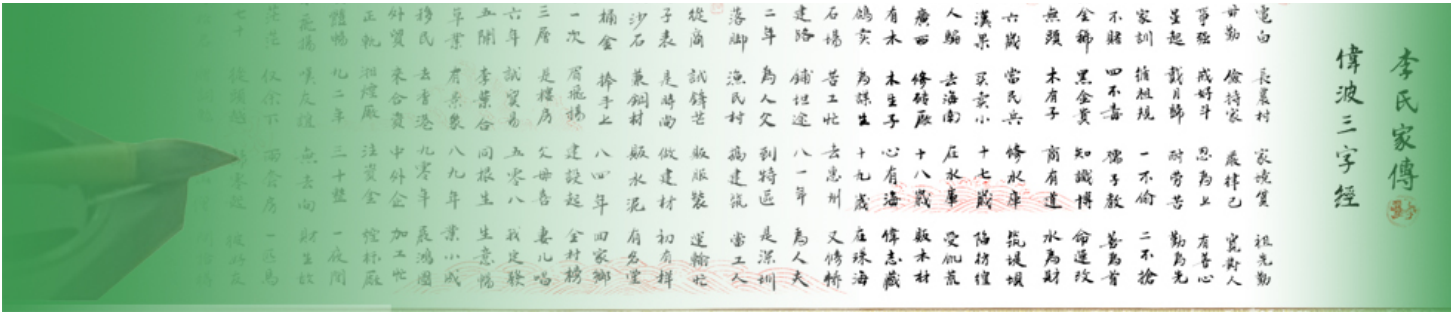 李氏家傳
偉波三字經
電白 長晨村 家境貧 祖先勤
毋勤 儉持家 嚴律己 寬對人
爭強 戒好斗 忍為上 有善心
星起 戴月歸 耐勞苦 勤為先
家訓 循祖規 一不偷 二不搶
不賭 四不毒 孺子教 善為首
金稀 黑金貴 知識博 命運改
無頭 木有子 商有道 水為財
六歲 當民兵 修水庫 筑堤坝
漢果 買賣小 十七歲 陷彷徨
人騙 去海南 在水庫 受飢荒
廣西 修磚廠 十八歲 販木材
有木 木生子 心有海 偉志藏
鴿實 為謀生 十九歲 在珠海
石場 苦工忙 去惠州 又修橋
建路 鋪坦途 八一年 為人夫
二年 為人父 到特區 是深圳
落脚 漁民村 搞建筑 當工人
從商 試鋒芒 販服裝 運輸忙
子表 是時尚 做建材 初有樣
沙石 兼鋼材 販水泥 有名堂
桶金 捧手上 八四年 回家鄉
一次 眉飛揚 建設起 金村榜
三層 是樓房 父母喜 妻兒唱
六年 試貿易 五零八 我定發
五開 李葉合 同根生 生意暢
草業 有景象 八九年 業小成
移民 去香港 九零年 展鴻圖
外貿 來合資 中外企 加工忙
正軌 湘煙廠 注資金
體暢 九二年 三十整 一夜間
飛揚 無去向
茫茫 仅余下 兩套房 一匹馬
七十 從頭越